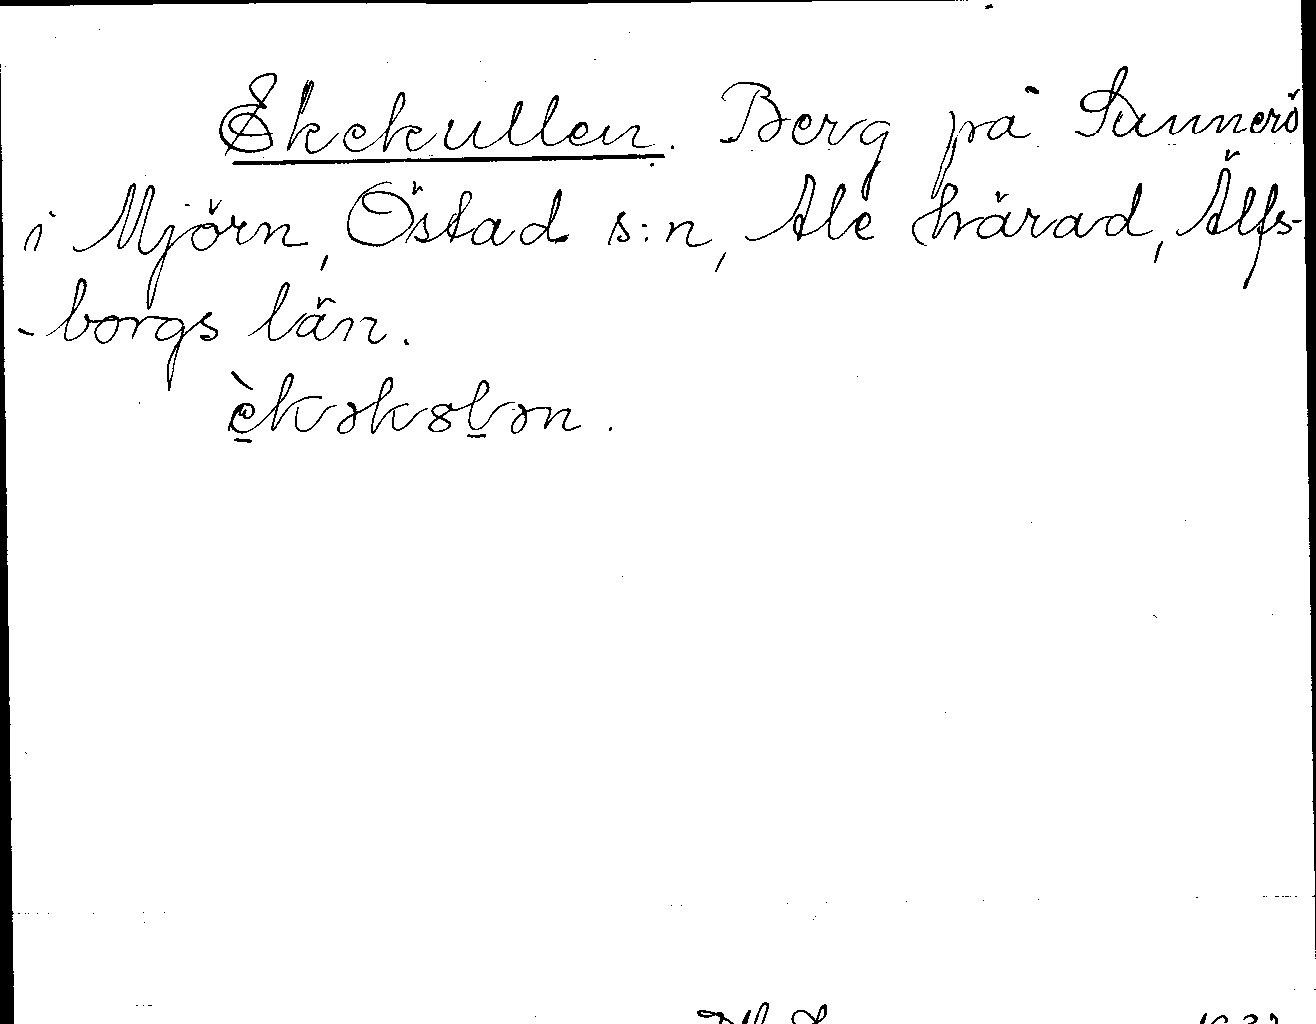 Ekekullen. Berg på Sunnerö
i Mjörn, Östad s:n, Ale härad, Älfs-
-borgs län.
èkəkslən.